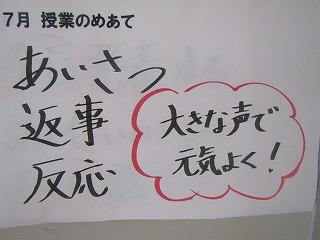 7月 授業のめあて
あいさつ
返事
反応
大きな声で
元気よく!